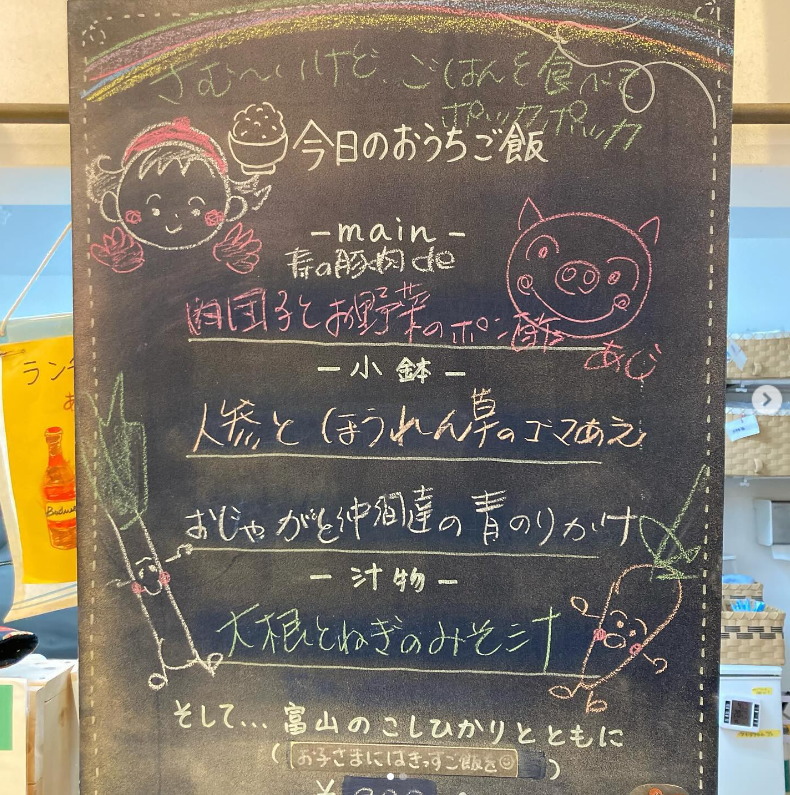 さむ〜いけど、ごはんを食べて
ポッカポッカ
今日のおうちご飯
-main-
寿の豚肉de
肉団子とお野菜のポン酢
あじ
-小鉢-
人参とほうれん草のゴマあえ
おじゃがと仲間達の青のりがけ
-汁物-
大根とねぎのみそ汁
そして... 富山のこしひかりとともに
(お子さまにはきっずご飯を☺)
¥
ラン